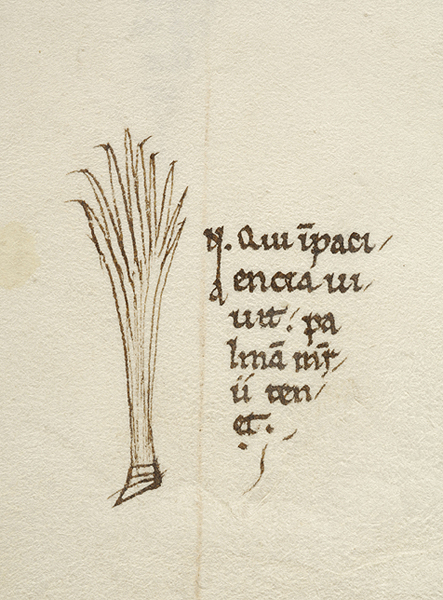 N. Qui īpaci/
encia ui/
uit: pa
lmā mr̄/
ii ten/
et.